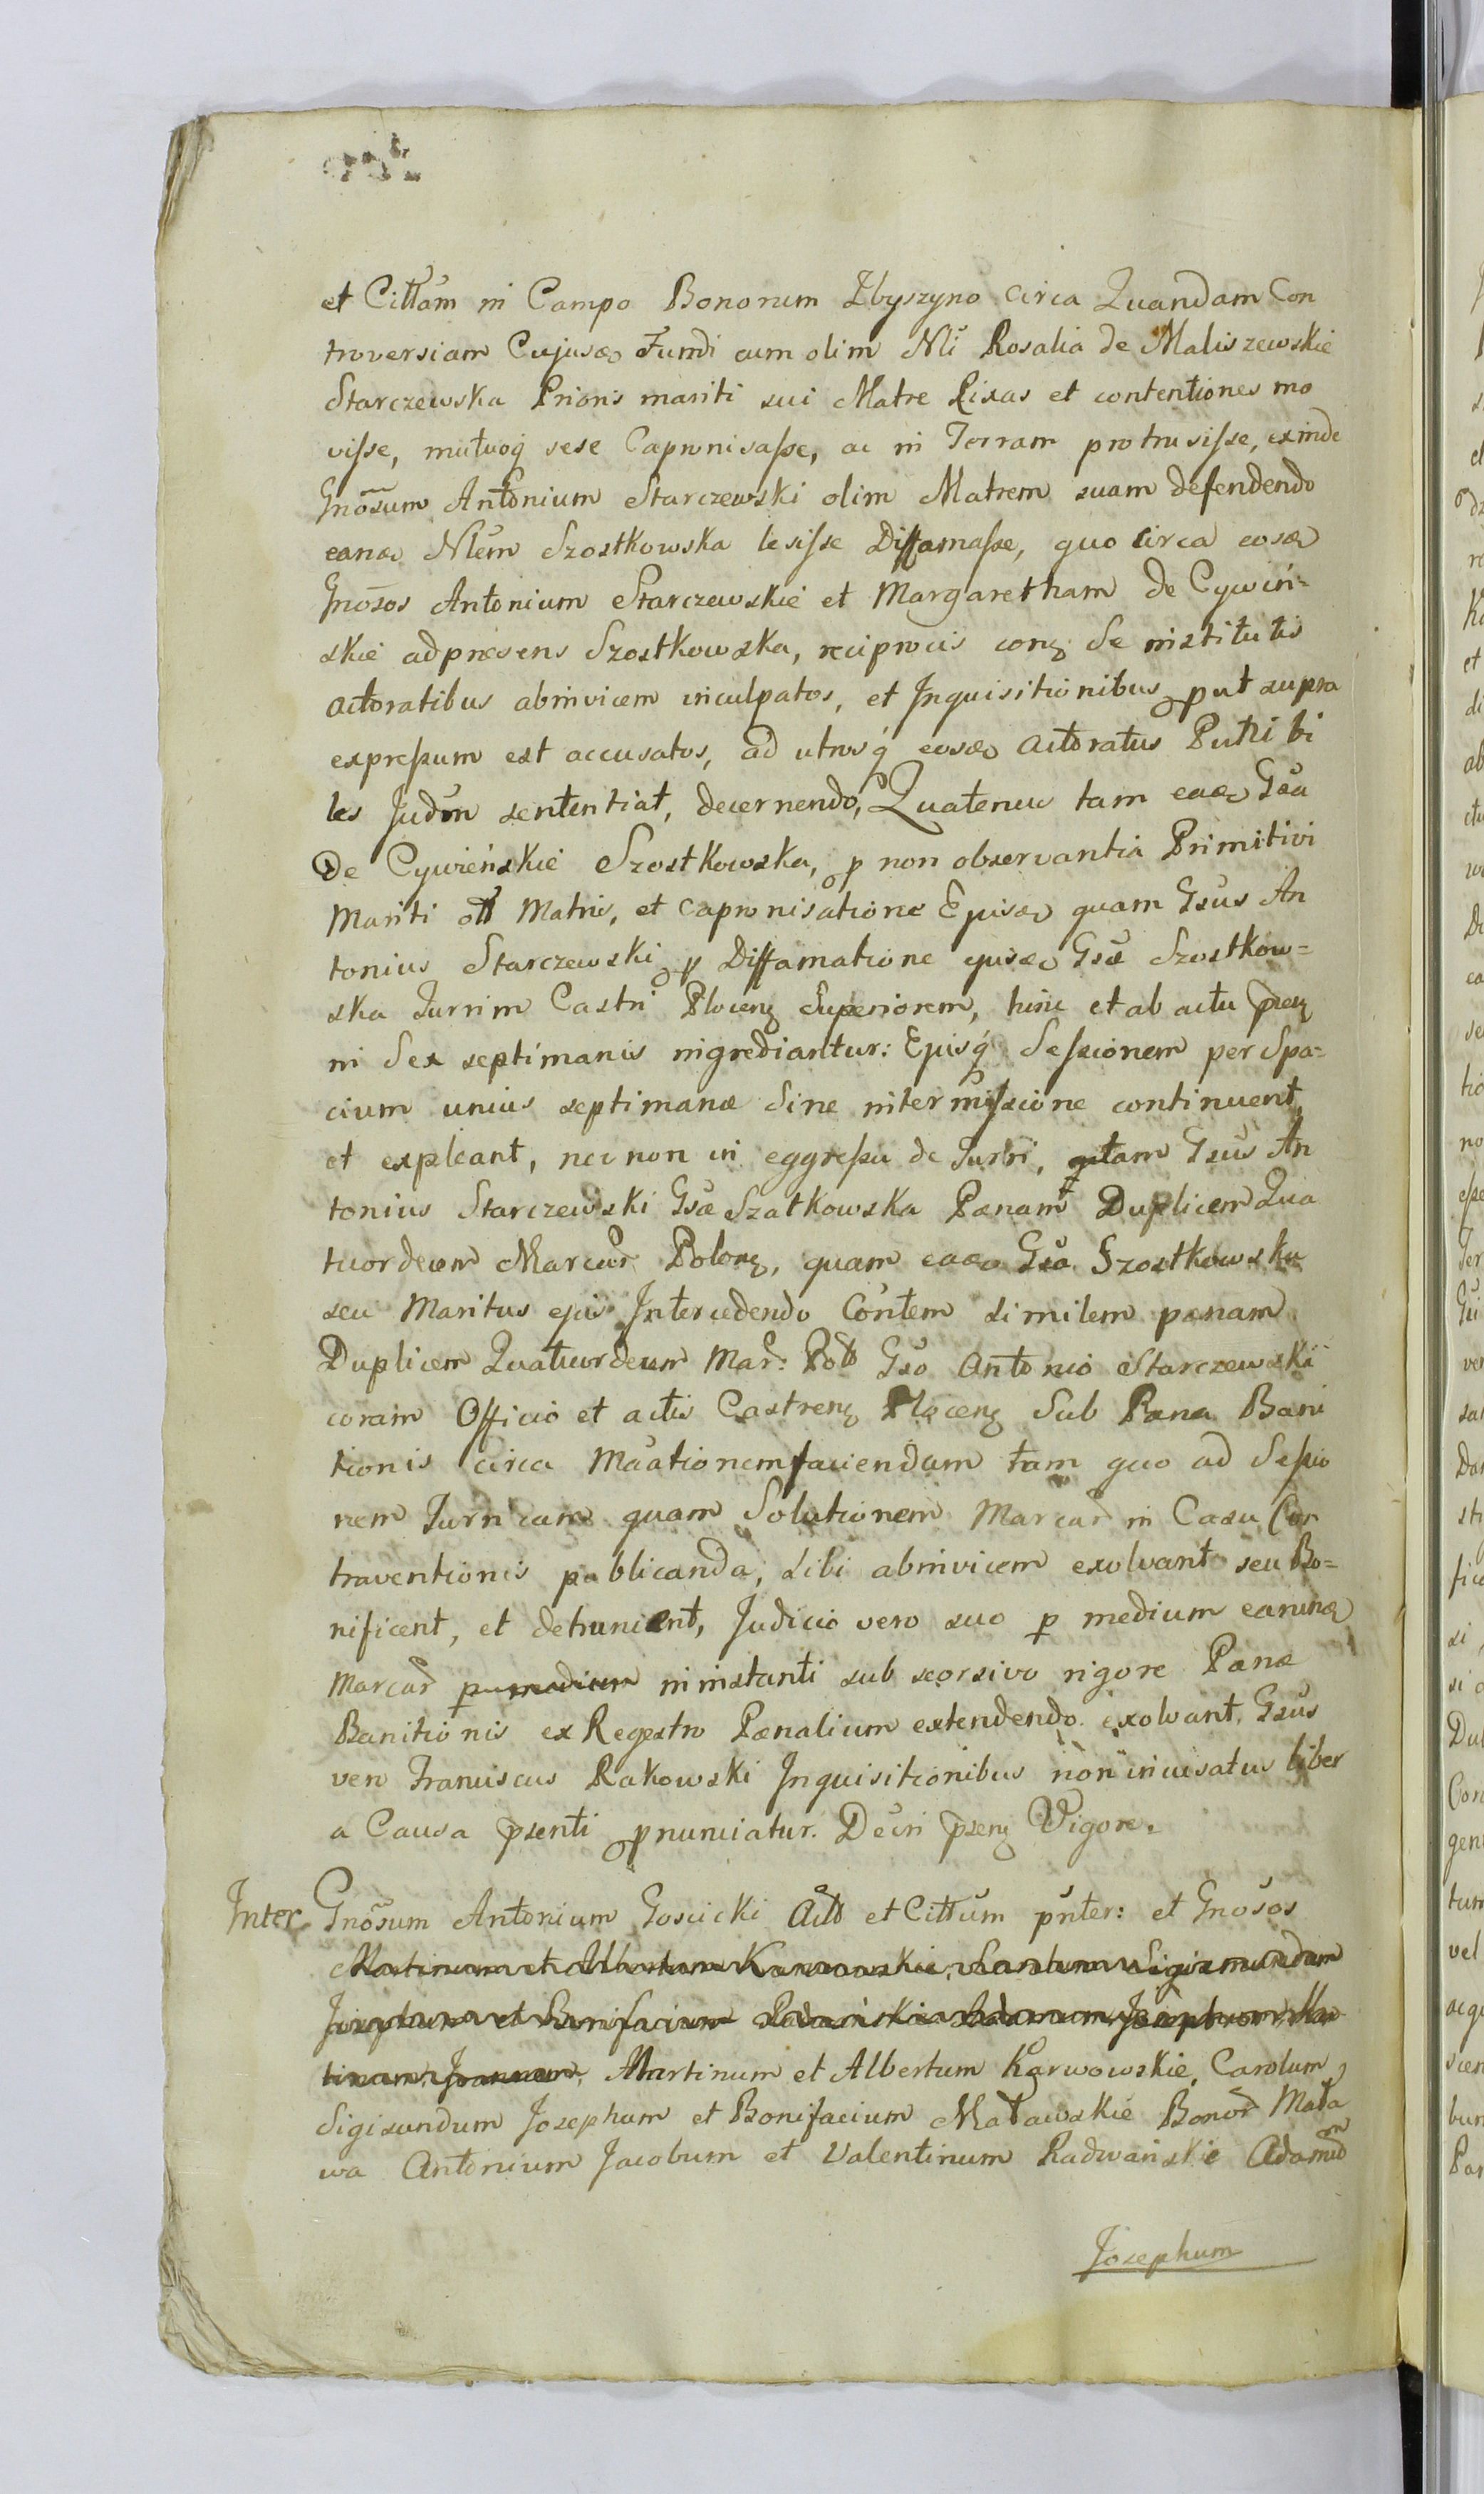 et Cittam in Campo Bonorum Zbyszyno circa Quandam Con
troversiam Cujusd Fundi cum olim Nli Rosalia de Maliszewskie
Starczewska Prioris mariti sui Matre Rixas et contentiones mo
visse, mutuoq sese Capronisasse, ac in Terram protrusisse, exinde
Gnosum Antonium Starczewski olim Matrem suam defendendo
eand Nlem Szostkowska lesisse Diffamasse, quo circa eosd
Gnosos Antonium Starczewskie et Margaretham de Cywiń=
skie adpræsens Szostkowska, reciprocis corq Se institutis
actoratibus abinvicem inculpatos, et Inquisitionibus put supra
expressum est accusatos, ad utrosq eosd actoratus Putribi
les Judm sententiat, decernendo, Quatenus tam ead Gsa
De Cywieńskie Szostkowska, p non observantia Primitivi
Mariti Matris, et capronisatione Ejusd quam Gsus An
tonius Starczewski p Diffamatione ejusd Gsæ Szostkow=
ska Turrim Castri Plocenq Superiorem, hinc et ab actu psenq
in Sex septimanis ingrediantur: Ejusq Sessionem per Spa=
cium unius septimanæ Sine intermissione continuent,
et expleant, nec non in eggressu de Turri, qtam Gsus An
tonius Starczewski Gsæ Szatkowska Pænam Duplicem Qua
tuordecem Marcar Polonq, quam ead Gsa Szostkowska
seu Maritus ejus Intercedendo Contem similem pænam
Duplicem Quatuordecem Mar: Pol Gso Antonio Starczewski
coram Officio et actis Castrenq Plocenq Sub Pæna Bani
tionis circa Mâationem faciendam tam quo ad Sessio
nem Turricam quam Solutionem Marcar in Casu Con
traventionis publicanda, sibi abinvicem exolvant seu Bo=
nificent, et detrunient, Judicio vero suo p medium earund
Marcar p medium in instanti sub seorsivo rigore Pænæ
Banitionis ex Regestro Pænalium extendendo exolvant. Gsus
vero Franciscus Rakowski Inquisitionibus non incusatus liber
a Causa psenti pnunciatur. Decri psenq Vigore.
Inter Gnosum Antonium Goscicki Act et Cittum pnter: et Gnosos
Martinum et Albertum Karwowskie, Sigismundum
Josephum et Bonifacium
Joannem, Martinum et Albertum Karwowskie, Carolum
Sigisundum Josephum et Bonifacium Maławskie Bonor Mała
wa Antonium Jacobum et Valentinum Radwańskie Adamum
Josephum